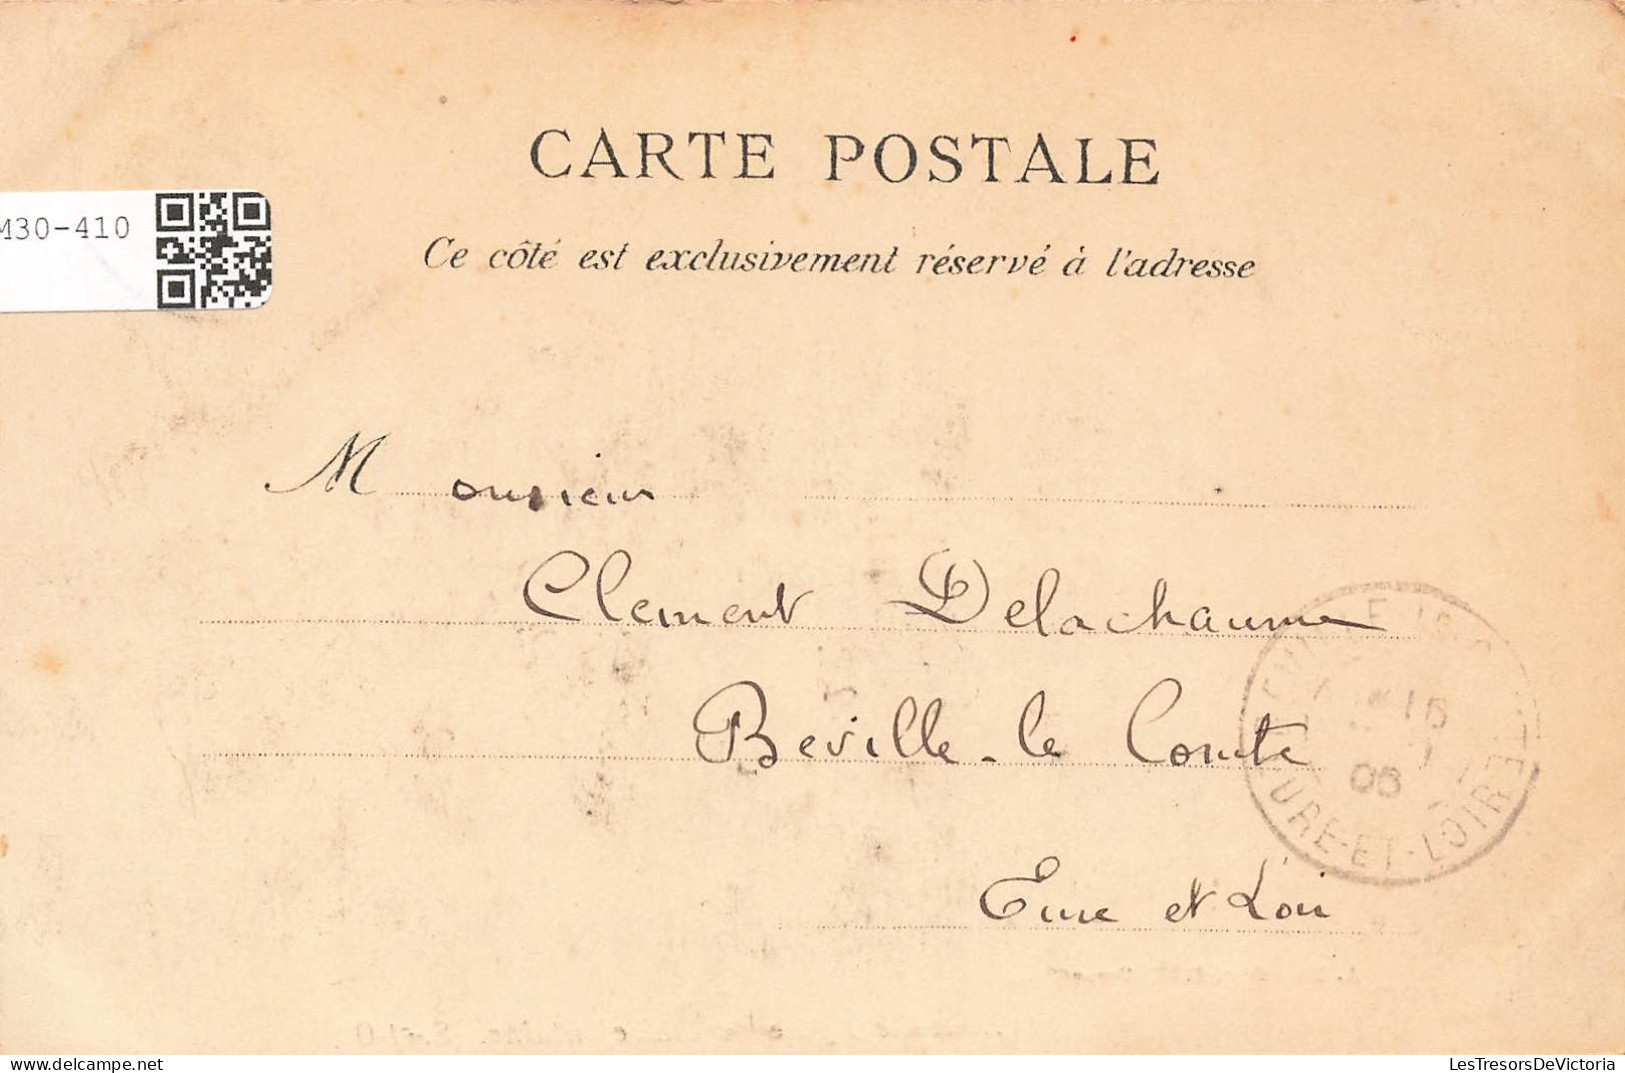 CARTE POSTALE
M30-410
Ce côté est exclusivement réservé à l'adresse
Monsieur
Clement Delachaume
Beville-le Comte
Eure et Loir
16
06
EURE-ET-LOIR
LesTresorsDeVictoria